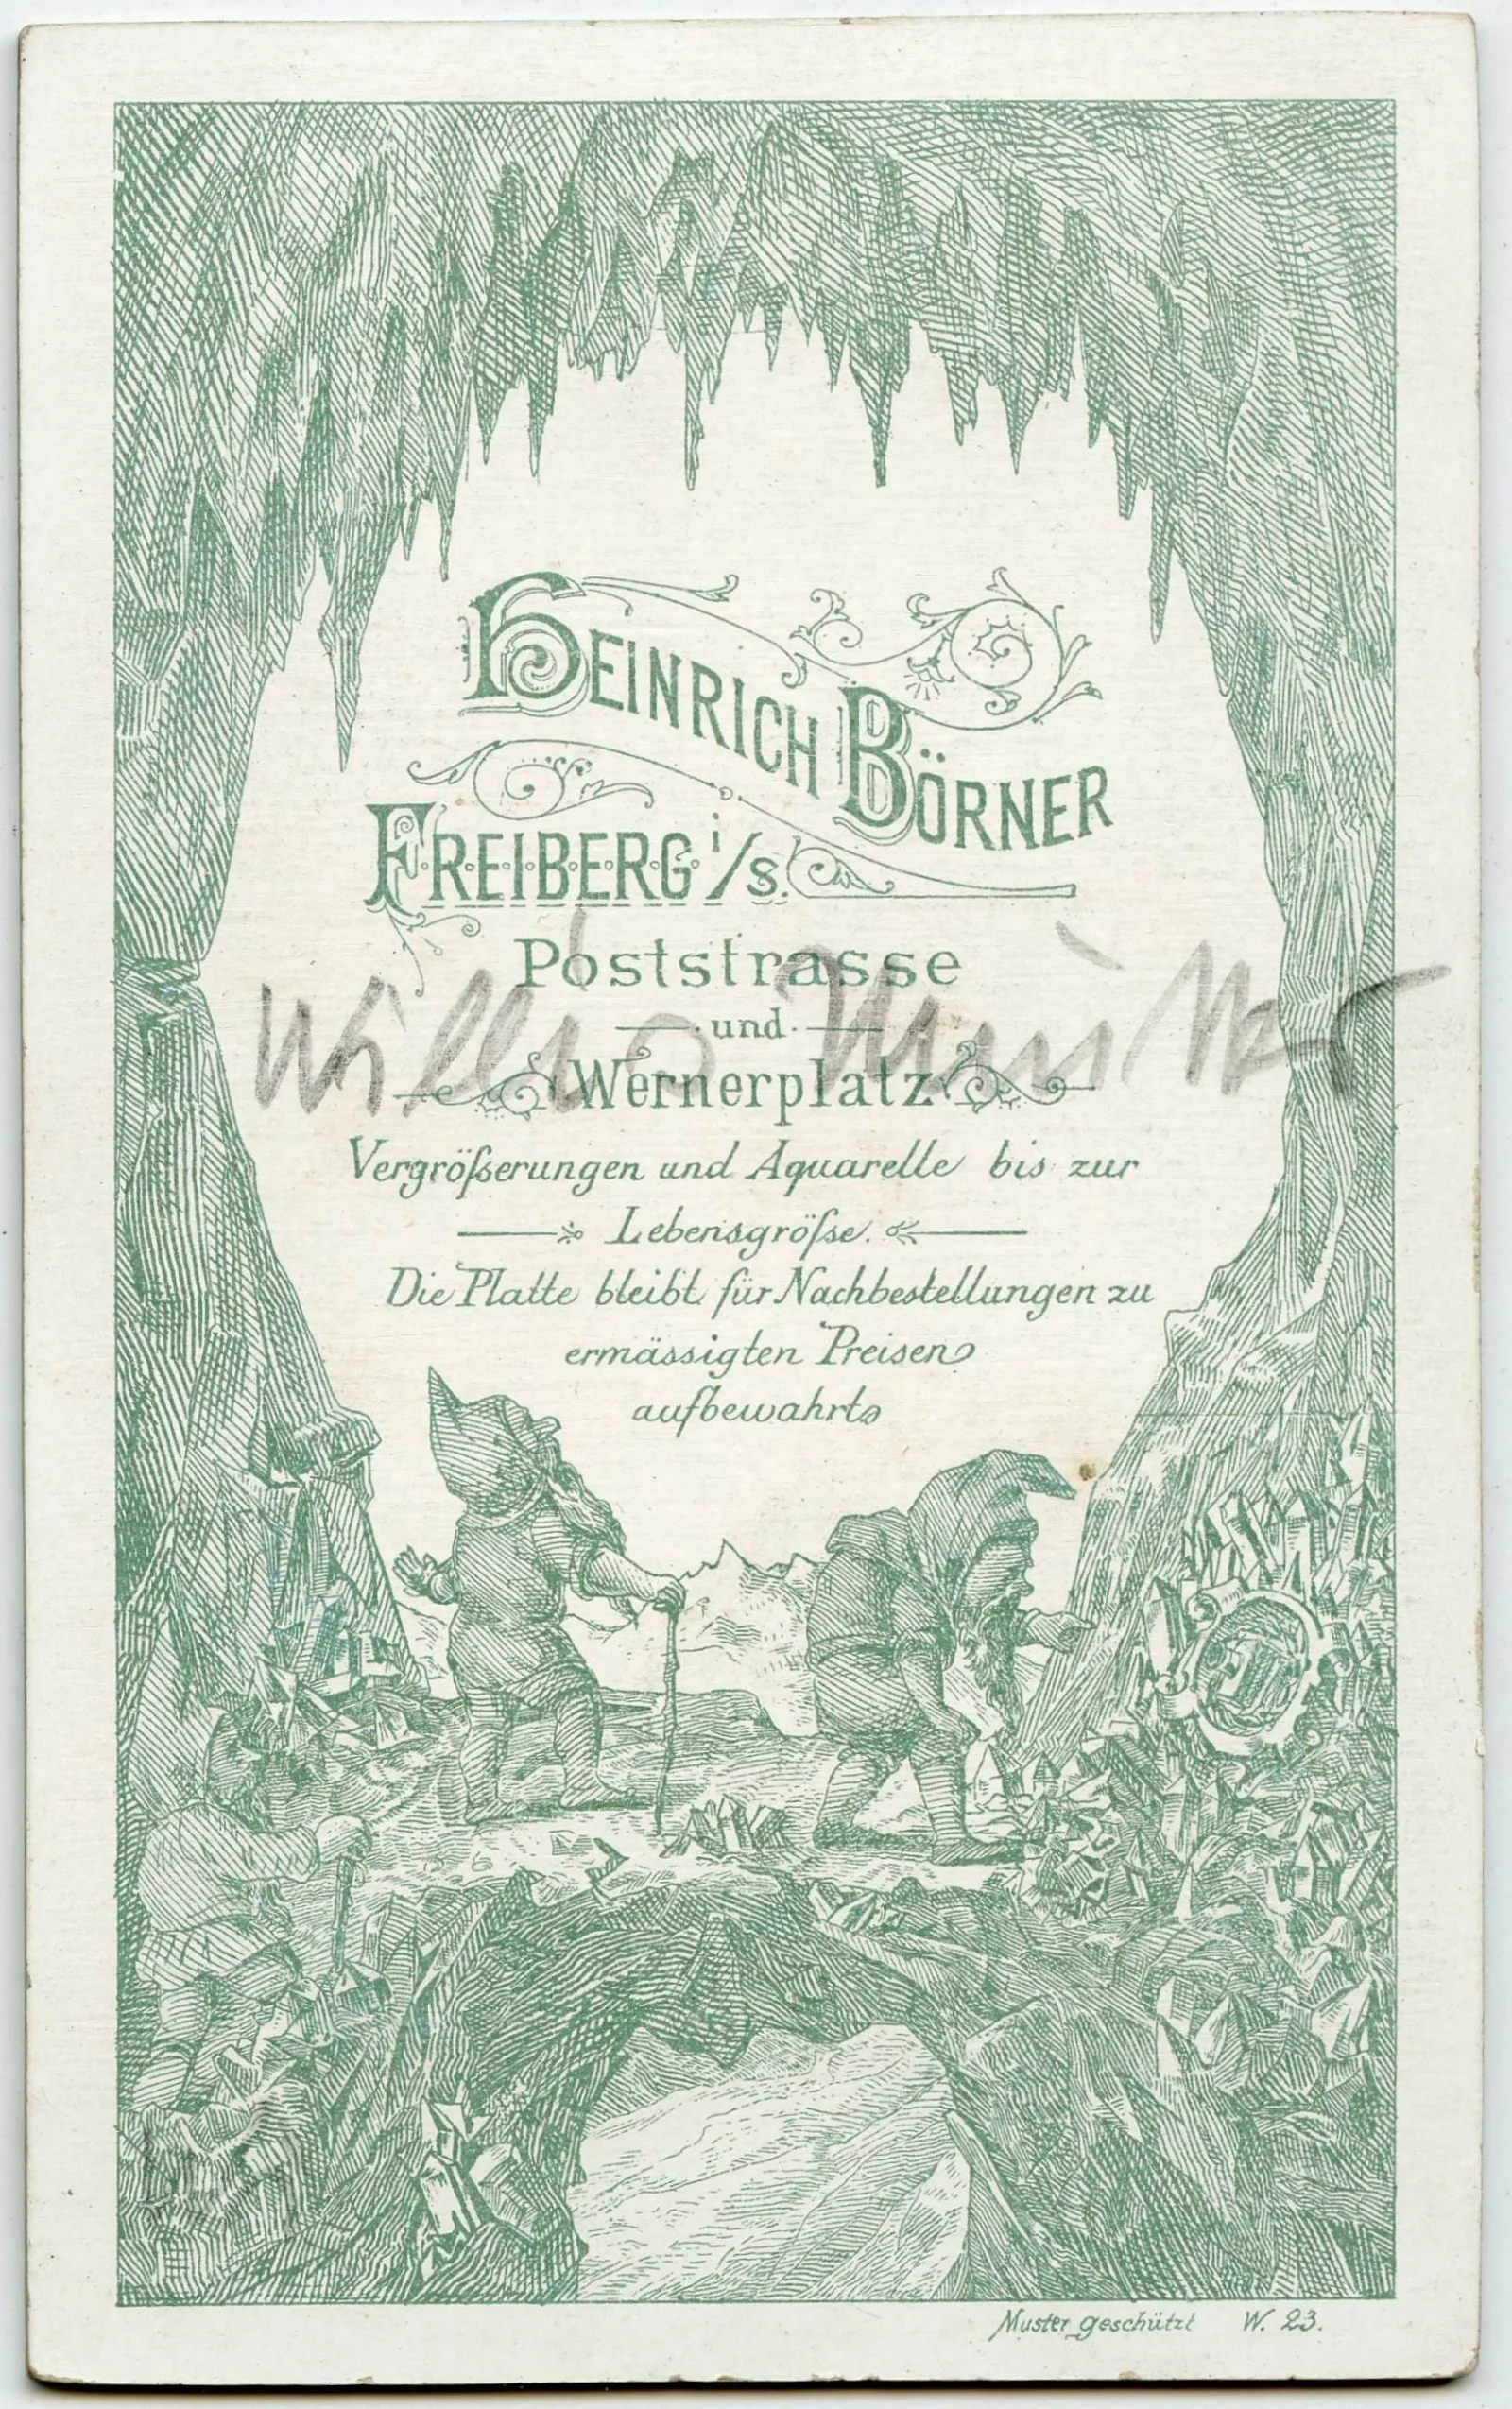 HEINRICH BÖRNER
FREIBERG i/S.
Poststrasse
und
Wernerplatz
Vergrößerungen und Aquarelle bis zur
Lebensgröße.
Die Platte bleibt für Nachbestellungen zu
ermässigten Preisen
aufbewahrt
Muster geschützt W. 23.